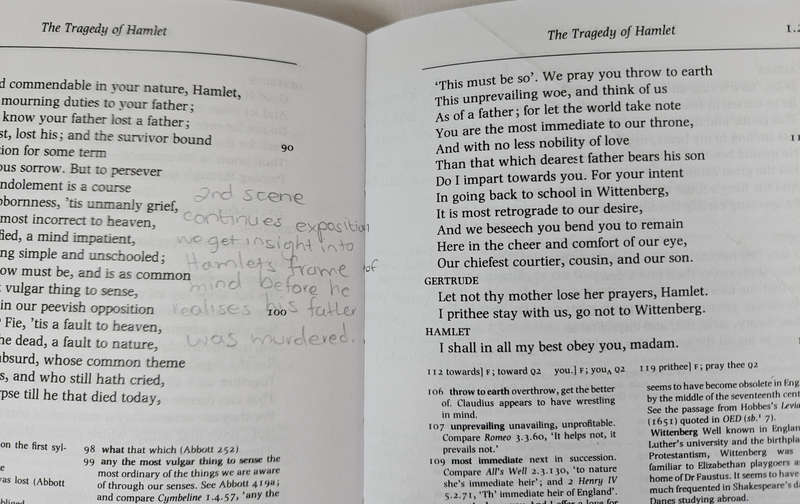 The Tragedy of Hamlet
commendable in your nature, Hamlet,
mourning duties to your father;
know your father lost a father;
lost his; and the survivor bound
90
for some term
sorrow. But to persever
is a course
'tis unmanly grief,
most incorrect to heaven,
a mind impatient,
simple and unschooled;
must be, and is as common
vulgar thing to sense,
in our peevish opposition
100
Fie, 'tis a fault to heaven,
the dead, a fault to nature,
absurd, whose common theme
and who still hath cried,
till he that died today,
2nd scene
continues exposition
we get insight into
Hamlet's frame of
mind before he
realises his father
was murdered.
on the first syl-
was lost (Abbott
98 what that which (Abbott 252)
99 any the most vulgar thing to sense the
most ordinary of the things we are aware
of through our senses. See Abbott 419a;
and compare Cymbeline 1.4.57, 'any the
The Tragedy of Hamlet
1.2
'This must be so'. We pray you throw to earth
This unprevailing woe, and think of us
As of a father; for let the world take note
You are the most immediate to our throne,
And with no less nobility of love
Than that which dearest father bears his son
Do I impart towards you. For your intent
In going back to school in Wittenberg,
It is most retrograde to our desire,
And we beseech you bend you to remain
Here in the cheer and comfort of our eye,
Our chiefest courtier, cousin, and our son.
GERTRUDE
Let not thy mother lose her prayers, Hamlet.
I prithee stay with us, go not to Wittenberg.
HAMLET
I shall in all my best obey you, madam.
112 towards] F; toward Q2 you.] F; you‸ Q2 119 prithee] F; pray thee Q2
106 throw to earth overthrow, get the better
of. Claudius appears to have wrestling
in mind.
107 unprevailing unavailing, unprofitable.
Compare Romeo 3.3.60, 'It helps not, it
prevails not.'
109 most immediate next in succession.
Compare All's Well 2.3.130, 'to nature
she's immediate heir'; and 2 Henry IV
5.2.71, 'Th' immediate heir of England'.
seems to have become obsolete in
by the middle of the seventeenth
See the passage from Hobbes's
(1651) quoted in OED (sb.¹ 7).
Wittenberg Well known in England
Luther's university and the
Protestantism, Wittenberg was
familiar to Elizabethan playgoers as
home of Dr Faustus. It seems to have
much frequented in Shakespeare's
Danes studying abroad.